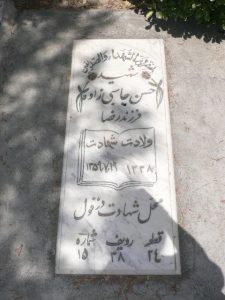 شهید
حسن جاسبی زاده
فرزند رضا
ولادت شهادت
۱۳۳۸ ۱۳۵۹/۷/۱۹
محل شهادت دزفول
قطعه ردیف شماره
۲۴ ۳۸ ۱۵